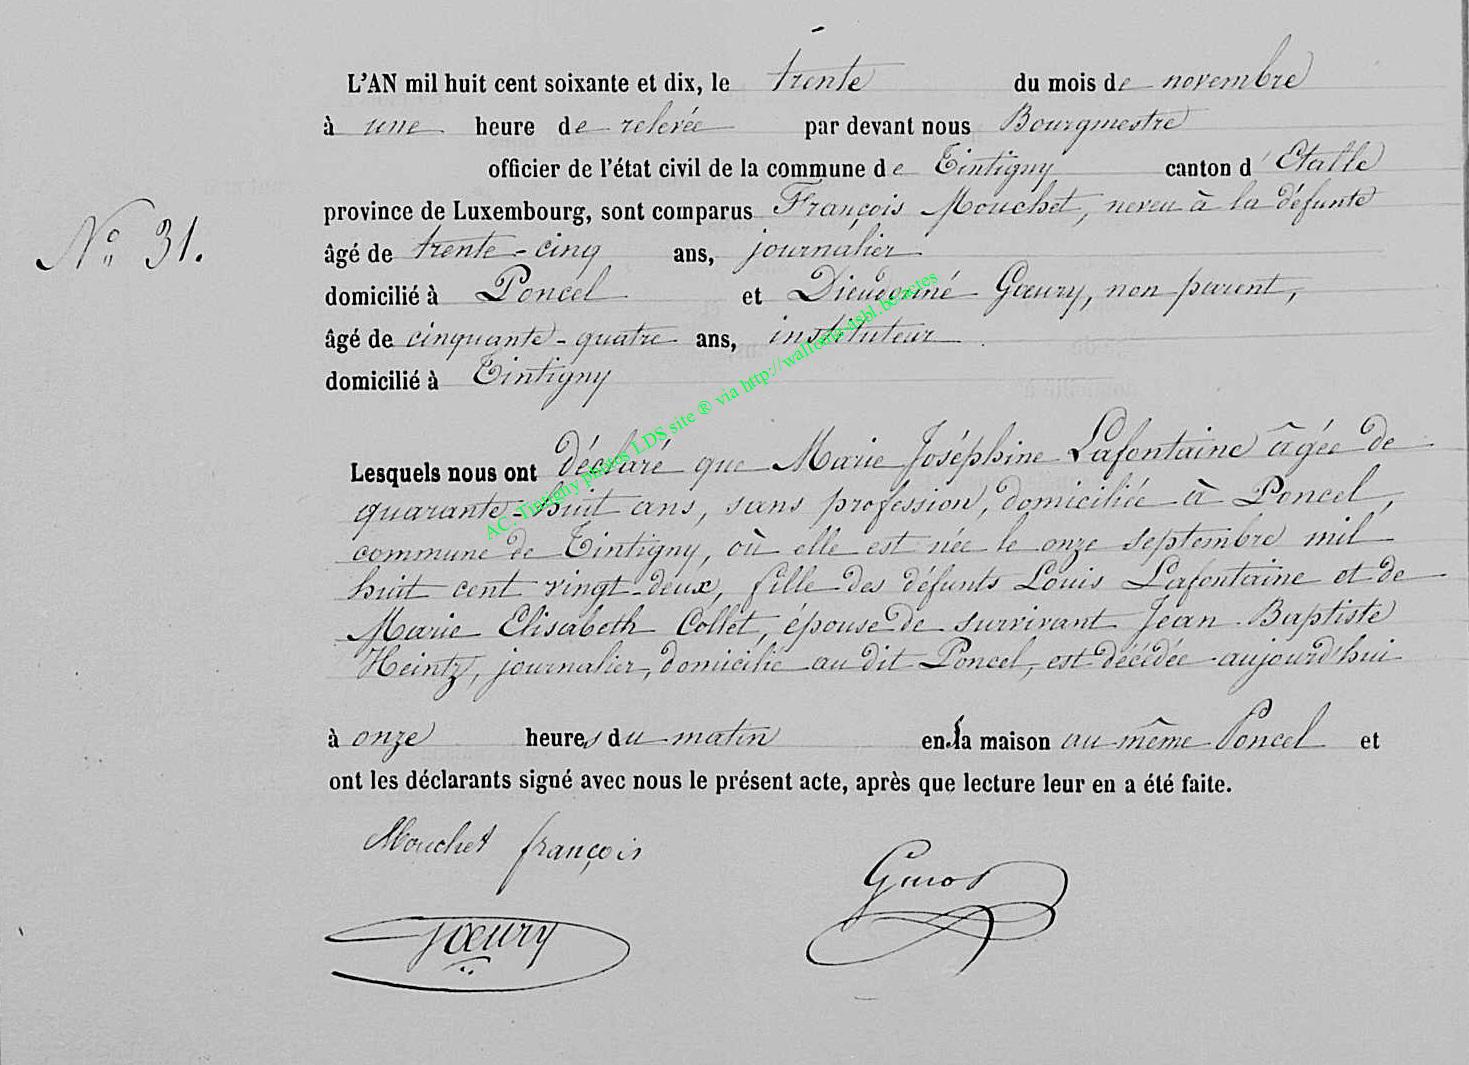 L'AN mil huit cent soixante et dix, le trente du mois de novembre
à une heure de relevée par devant nous Bourgmestre
officier de l'état civil de la commune de Tintigny canton d'Etalle
province de Luxembourg, sont comparus François Mouchet, neveu à la défunte
N° 31.
âgé de trente-cinq ans, journalier
domicilié à Poncel et Dieudonné Gœury, non parent,
âgé de cinquante-quatre ans, instituteur
domicilié à Tintigny
AC. Tintigny photos LDS site ® via http://wallonia-asbl.be/actes
Lesquels nous ont déclaré que Marie Joséphine Lafontaine âgée de
quarante-huit ans, sans profession, domiciliée à Poncel,
commune de Tintigny, où elle est née le onze septembre mil
huit cent vingt-deux, fille des défunts Louis Lafontaine et de
Marie Elisabeth Collet, épouse de survivant Jean Baptiste
Heintz, journalier, domicilié au dit Poncel, est décédée aujourd'hui
à onze heures du matin en la maison au même Poncel et
ont les déclarants signé avec nous le présent acte, après que lecture leur en a été faite.
Mouchet françois
Gœury